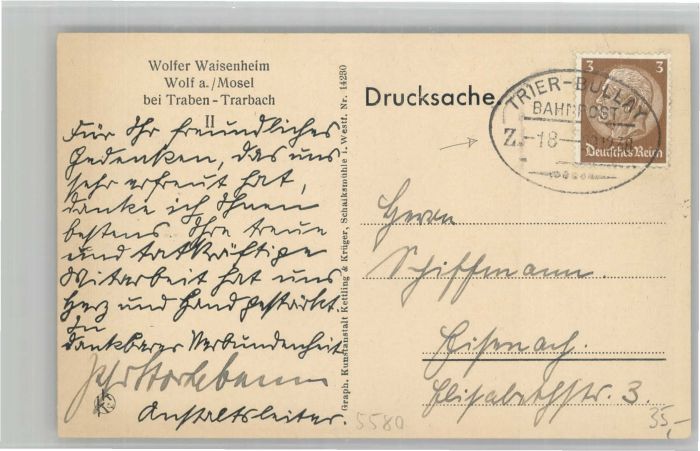 Wolfer Waisenheim
Wolf a./Mosel
bei Traben-Trarbach
II
Für Ihr freundliches
Gedenken, das uns
sehr erfreut hat,
danke ich Ihnen
bestens. Ihre treue
und tatkräftige
Mitarbeit hat uns
Herz und Hand gestärkt.
In
dankbarer Verbundenheit
Anstaltsleiter.
Graph. Kunstanstalt Kettling & Krüger, Schalksmühle i. Westf. Nr. 14280
Drucksache.
TRIER-BULLAY
BAHNPOST
Z. 18
3 3
Deutsches Reich
Herrn
Schiffmann.
Eisenach.
Elisabethstr. 3.
5580
35,-